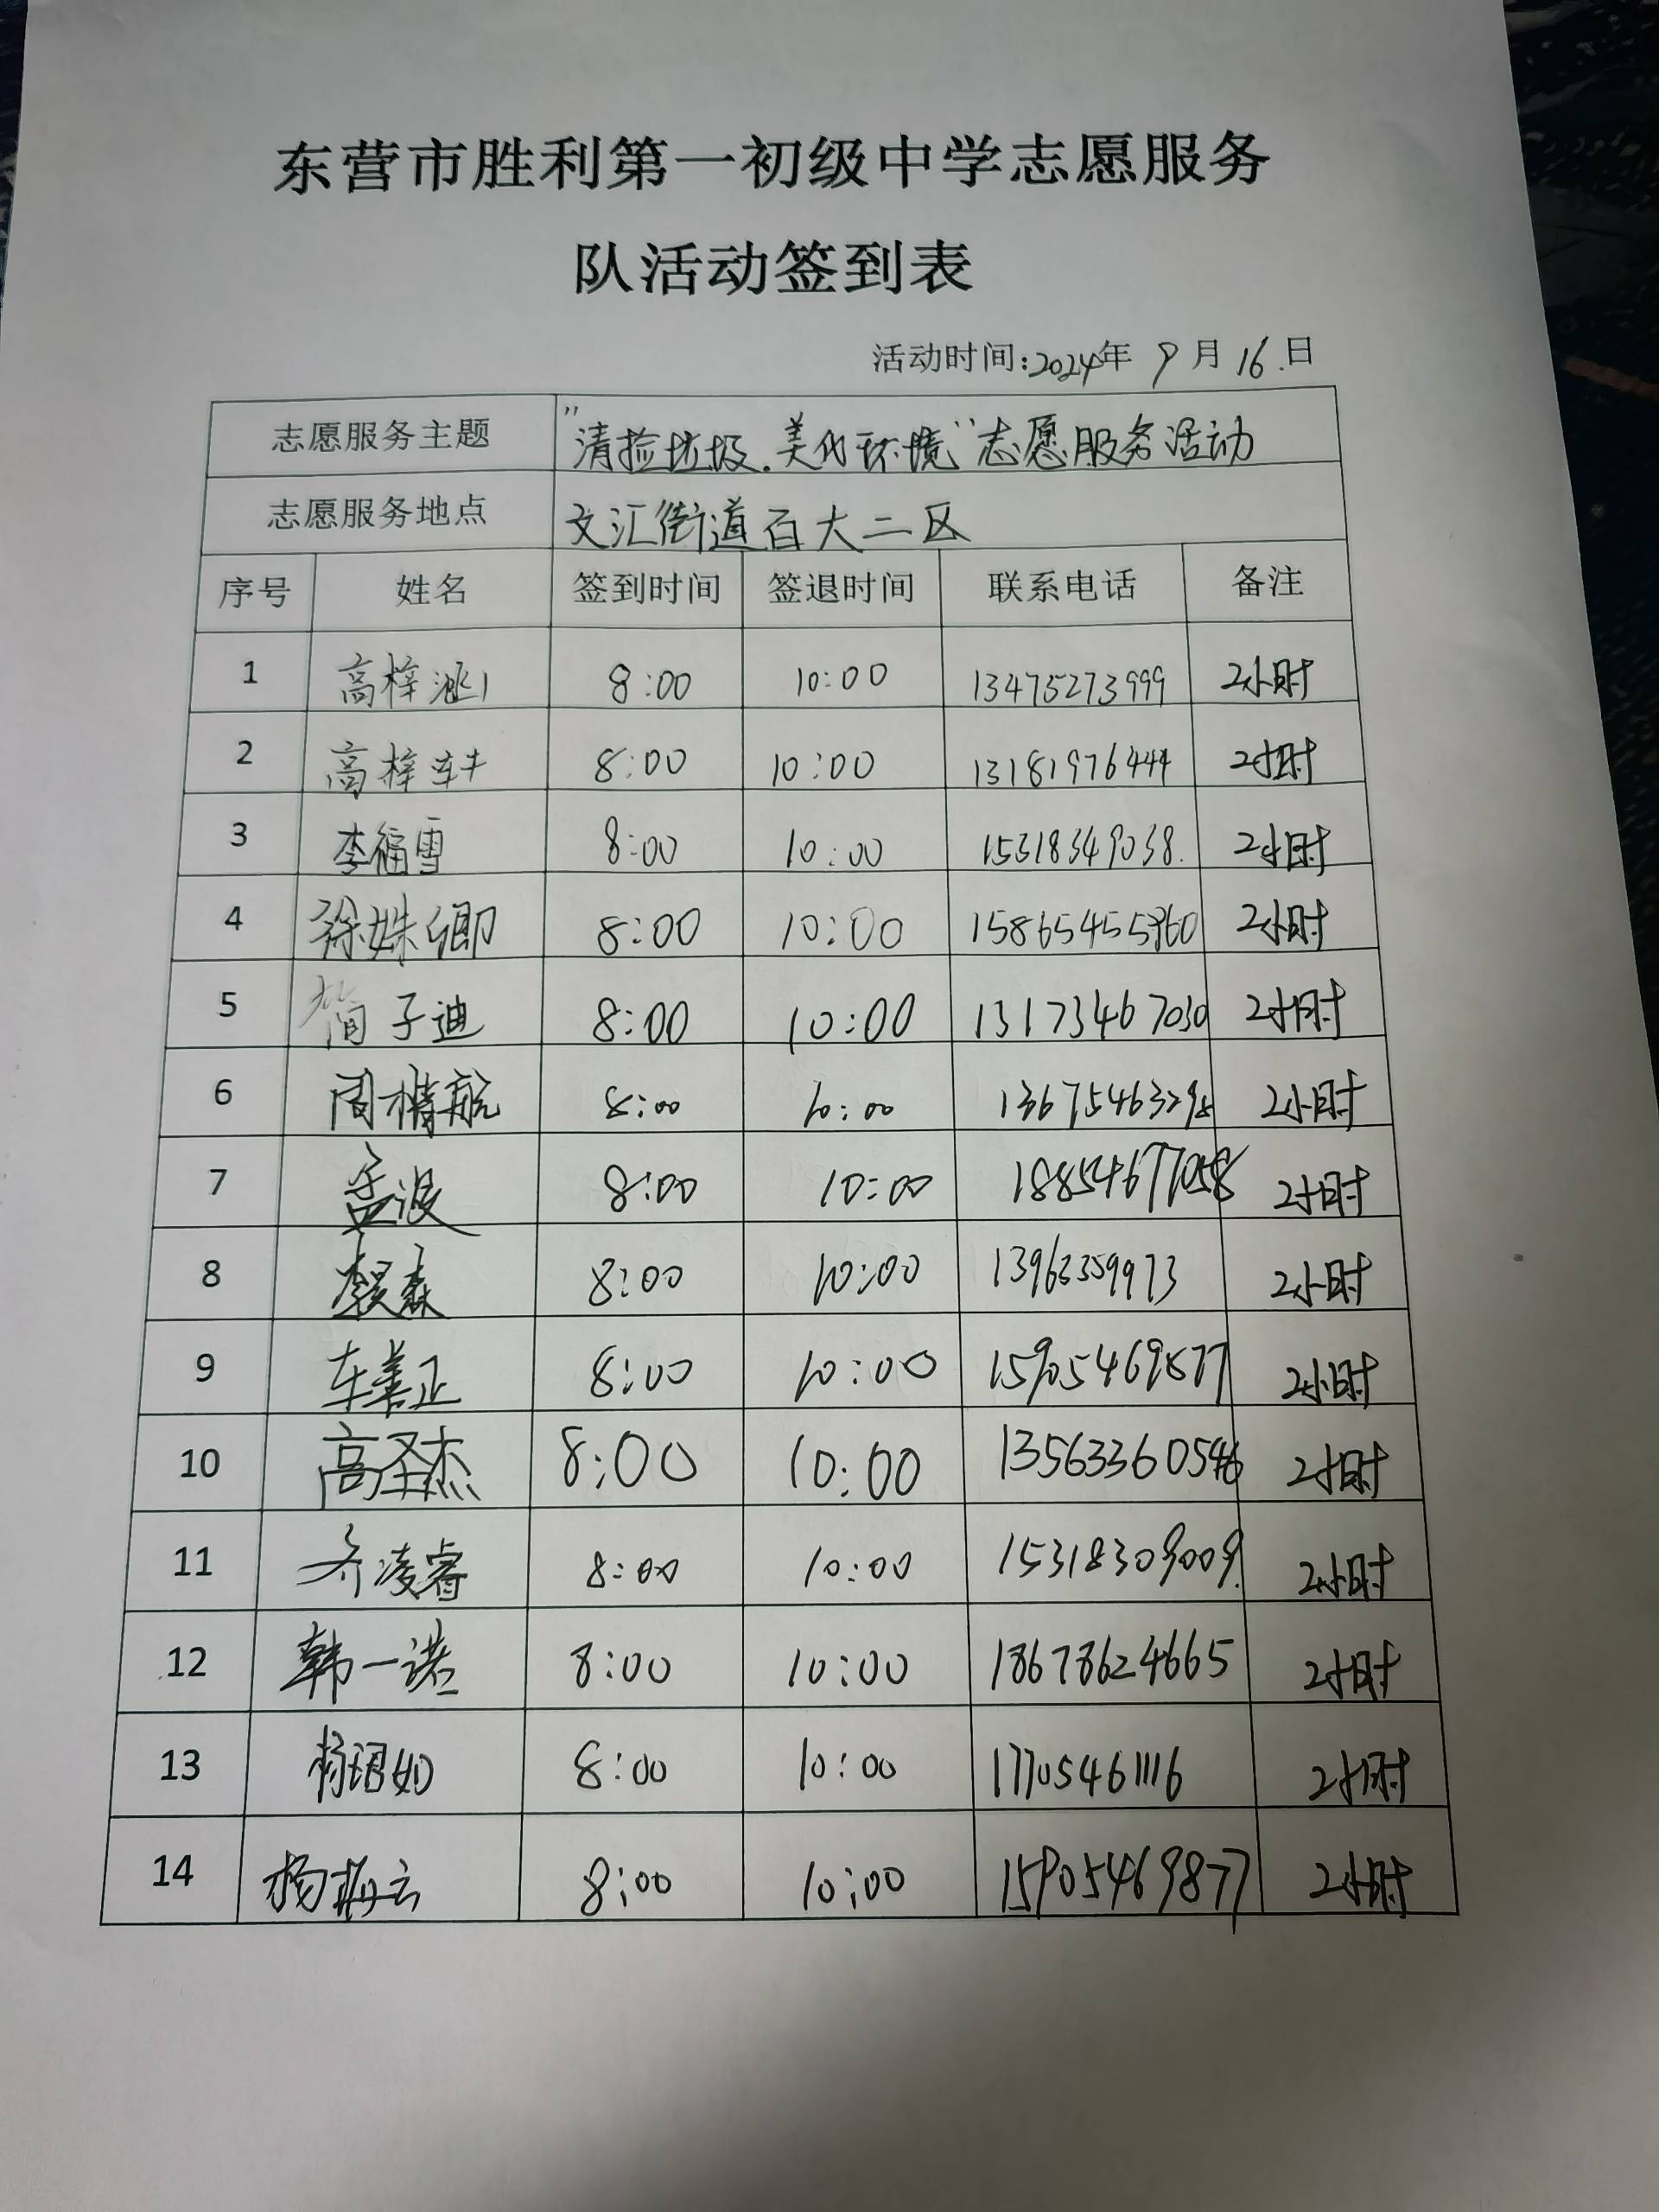 东营市胜利第一初级中学志愿服务
队活动签到表
活动时间:2024年 9月16.日
志愿服务主题 "清捡垃圾.美化环境"志愿服务活动
志愿服务地点 文汇街道百大二区
序号 姓名 签到时间 签退时间 联系电话 备注
1 高梓 8:00 10:00 13475273999 2小时
2 高梓轩 8:00 10:00 13181976444 2小时
3 李福雪 8:00 10:00 15318349038. 2小时
4 徐姝卿 8:00 10:00 2小时
5 简子迪 8:00 10:00 13173467030 2小时
6 周楠航 8:00 10:00 2小时
7 孟波 8:00 10:00 18854677058 2小时
8 8:00 10:00 13963359973 2小时
9 车善正 8:00 10:00 15905469877 2小时
10 高圣杰 8:00 10:00 13563360546 2小时
11 齐凌睿 8:00 10:00 15318309009. 2小时
12 韩一诺 8:00 10:00 18678624665 2小时
13 杨珺如 8:00 10:00 17705461116 2小时
14 8:00 10:00 15905469877 2小时